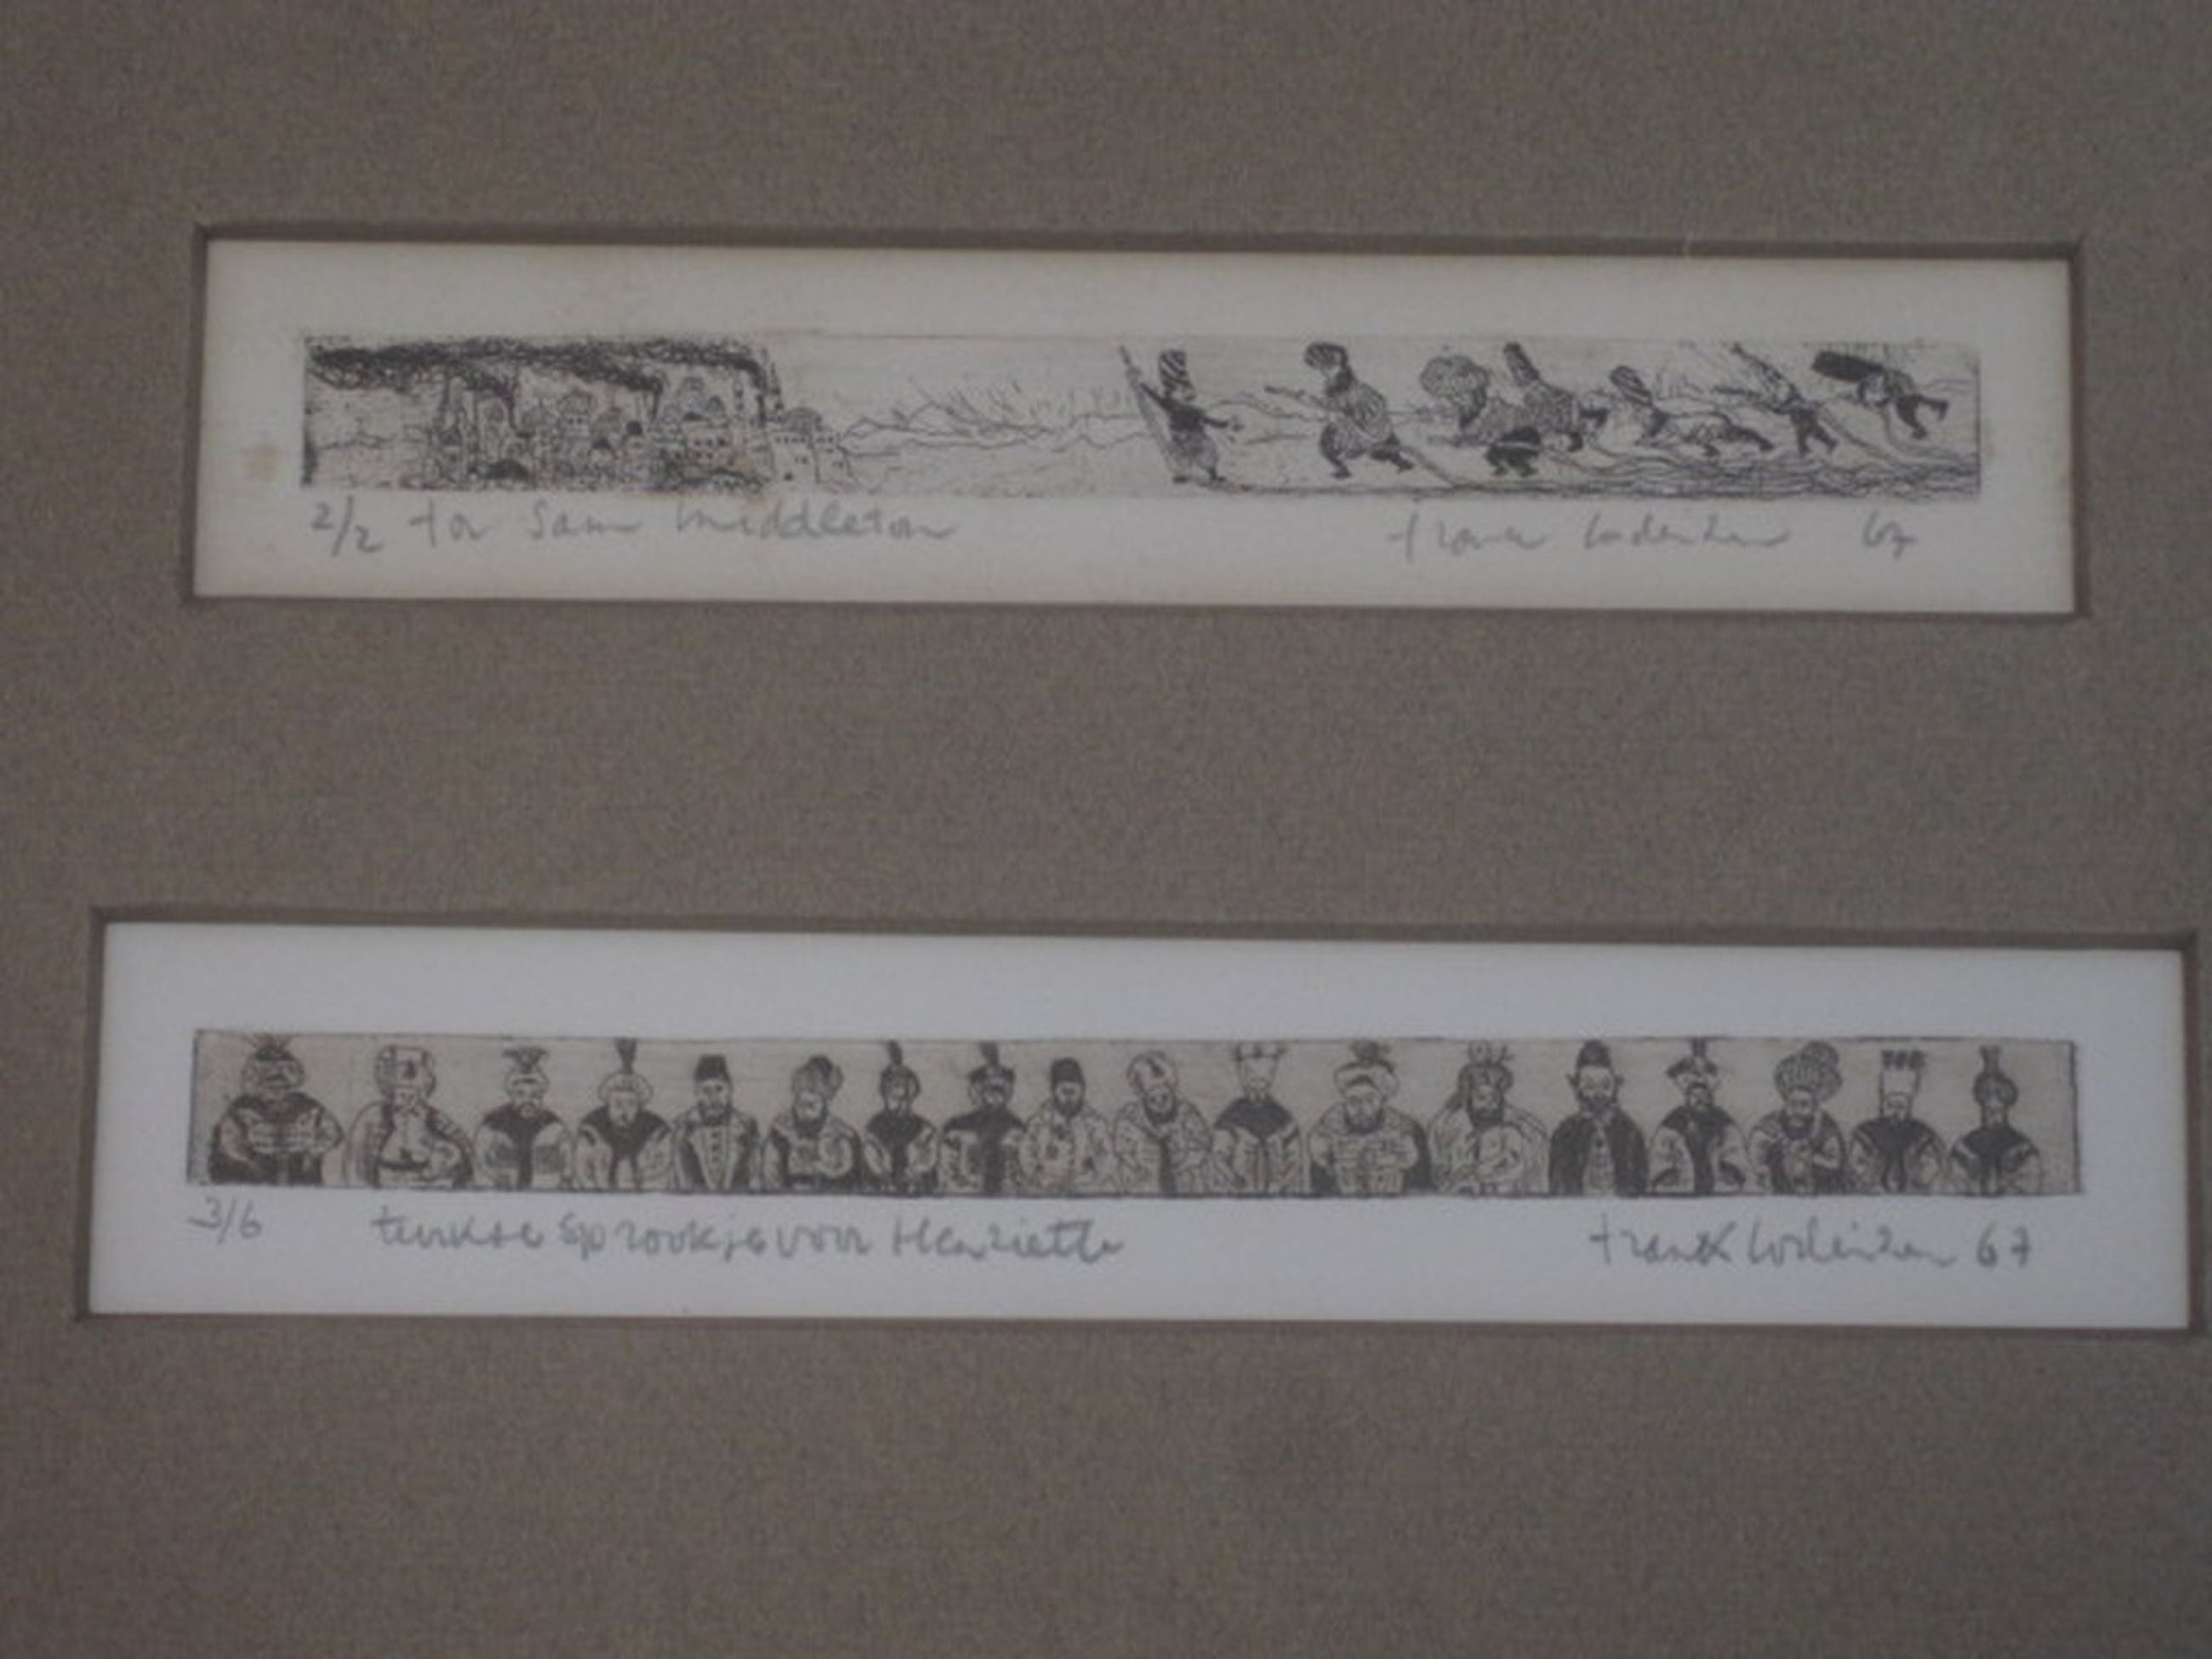 2/2 for Sam Middleton frank lodeizen 67
3/6 turkse sprookje voor Henriette frank lodeizen 67